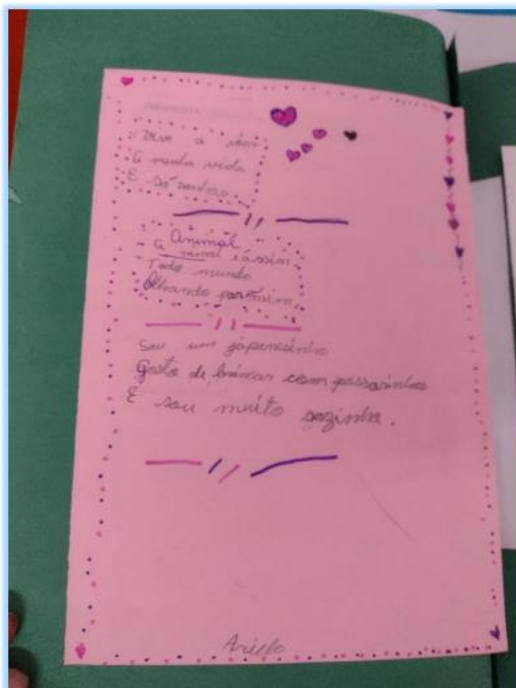 Vivo a
A minha vida
E só
Animal
A é assim
Todo mundo
Olhando para mim
Sou um japonesinho
Gosto de brincar com passarinhos
E sou muito sozinho.